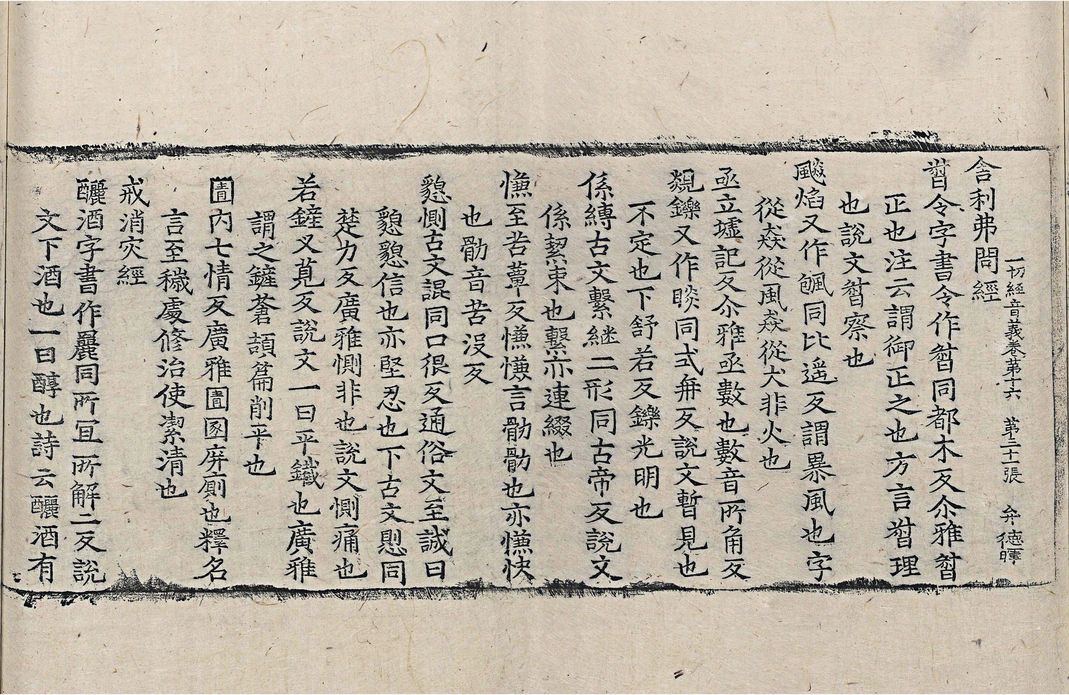 一切經音義卷苐十六　苐三十張　弁德暉
舍利弗問經
晵令字書令作晵同都木反尒雅晵
正也注云謂御正之也方言晵理
也說文晵察也
飈焰又作䬅同比遥反謂暴風也字
從猋從風猋從犬非火也
亟立墟記反尒雅亟數也數音所角反
覢鑠又作睒同式冉反說文暫見也
不定也下舒若反鑠光明也
係縛古文繫継二形同古帝反說文
係絜束也繫亦連綴也
憔至苦蕈反慊慊言勩勩也亦慊快
也勩音苦没反
懇惻古文誢同口很反通俗文至誠曰
懇懇信也亦堅忍也下古文恖同
楚力反廣雅惻非也說文惻痛也
若鏟叉莧反說文一曰平鐵也廣雅
謂之鏟蒼頡篇削平也
圊內七情反廣雅圊圂屏廁也釋名
言至穢處修治使潔清也
戒消灾經
釃酒字書作麗同所冝所解二反說
文下酒也一曰醇也詩云釃酒有